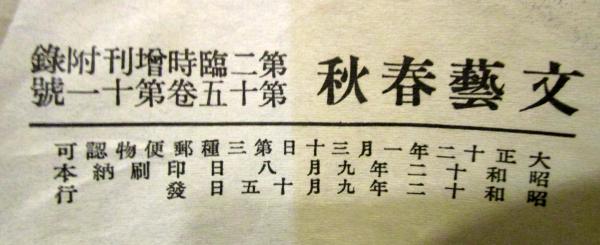 文藝春秋
第二臨時增刊附錄
第十五卷第十一號
大正十二年一月三十日第三種郵便物認可
昭和十二年九月八日印刷納本
昭和十二年九月十五日發行